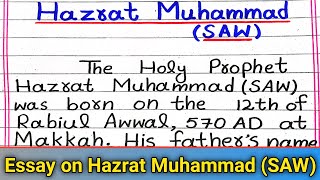 Hazrat Muhammad
(SAW)
The Holy Prophet
Hazrat Muhammad (SAW)
was born on the 12th of
Rabiul Awwal, 570 AD at
Makkah. His father's name
Essay on Hazrat Muhammad (SAW)